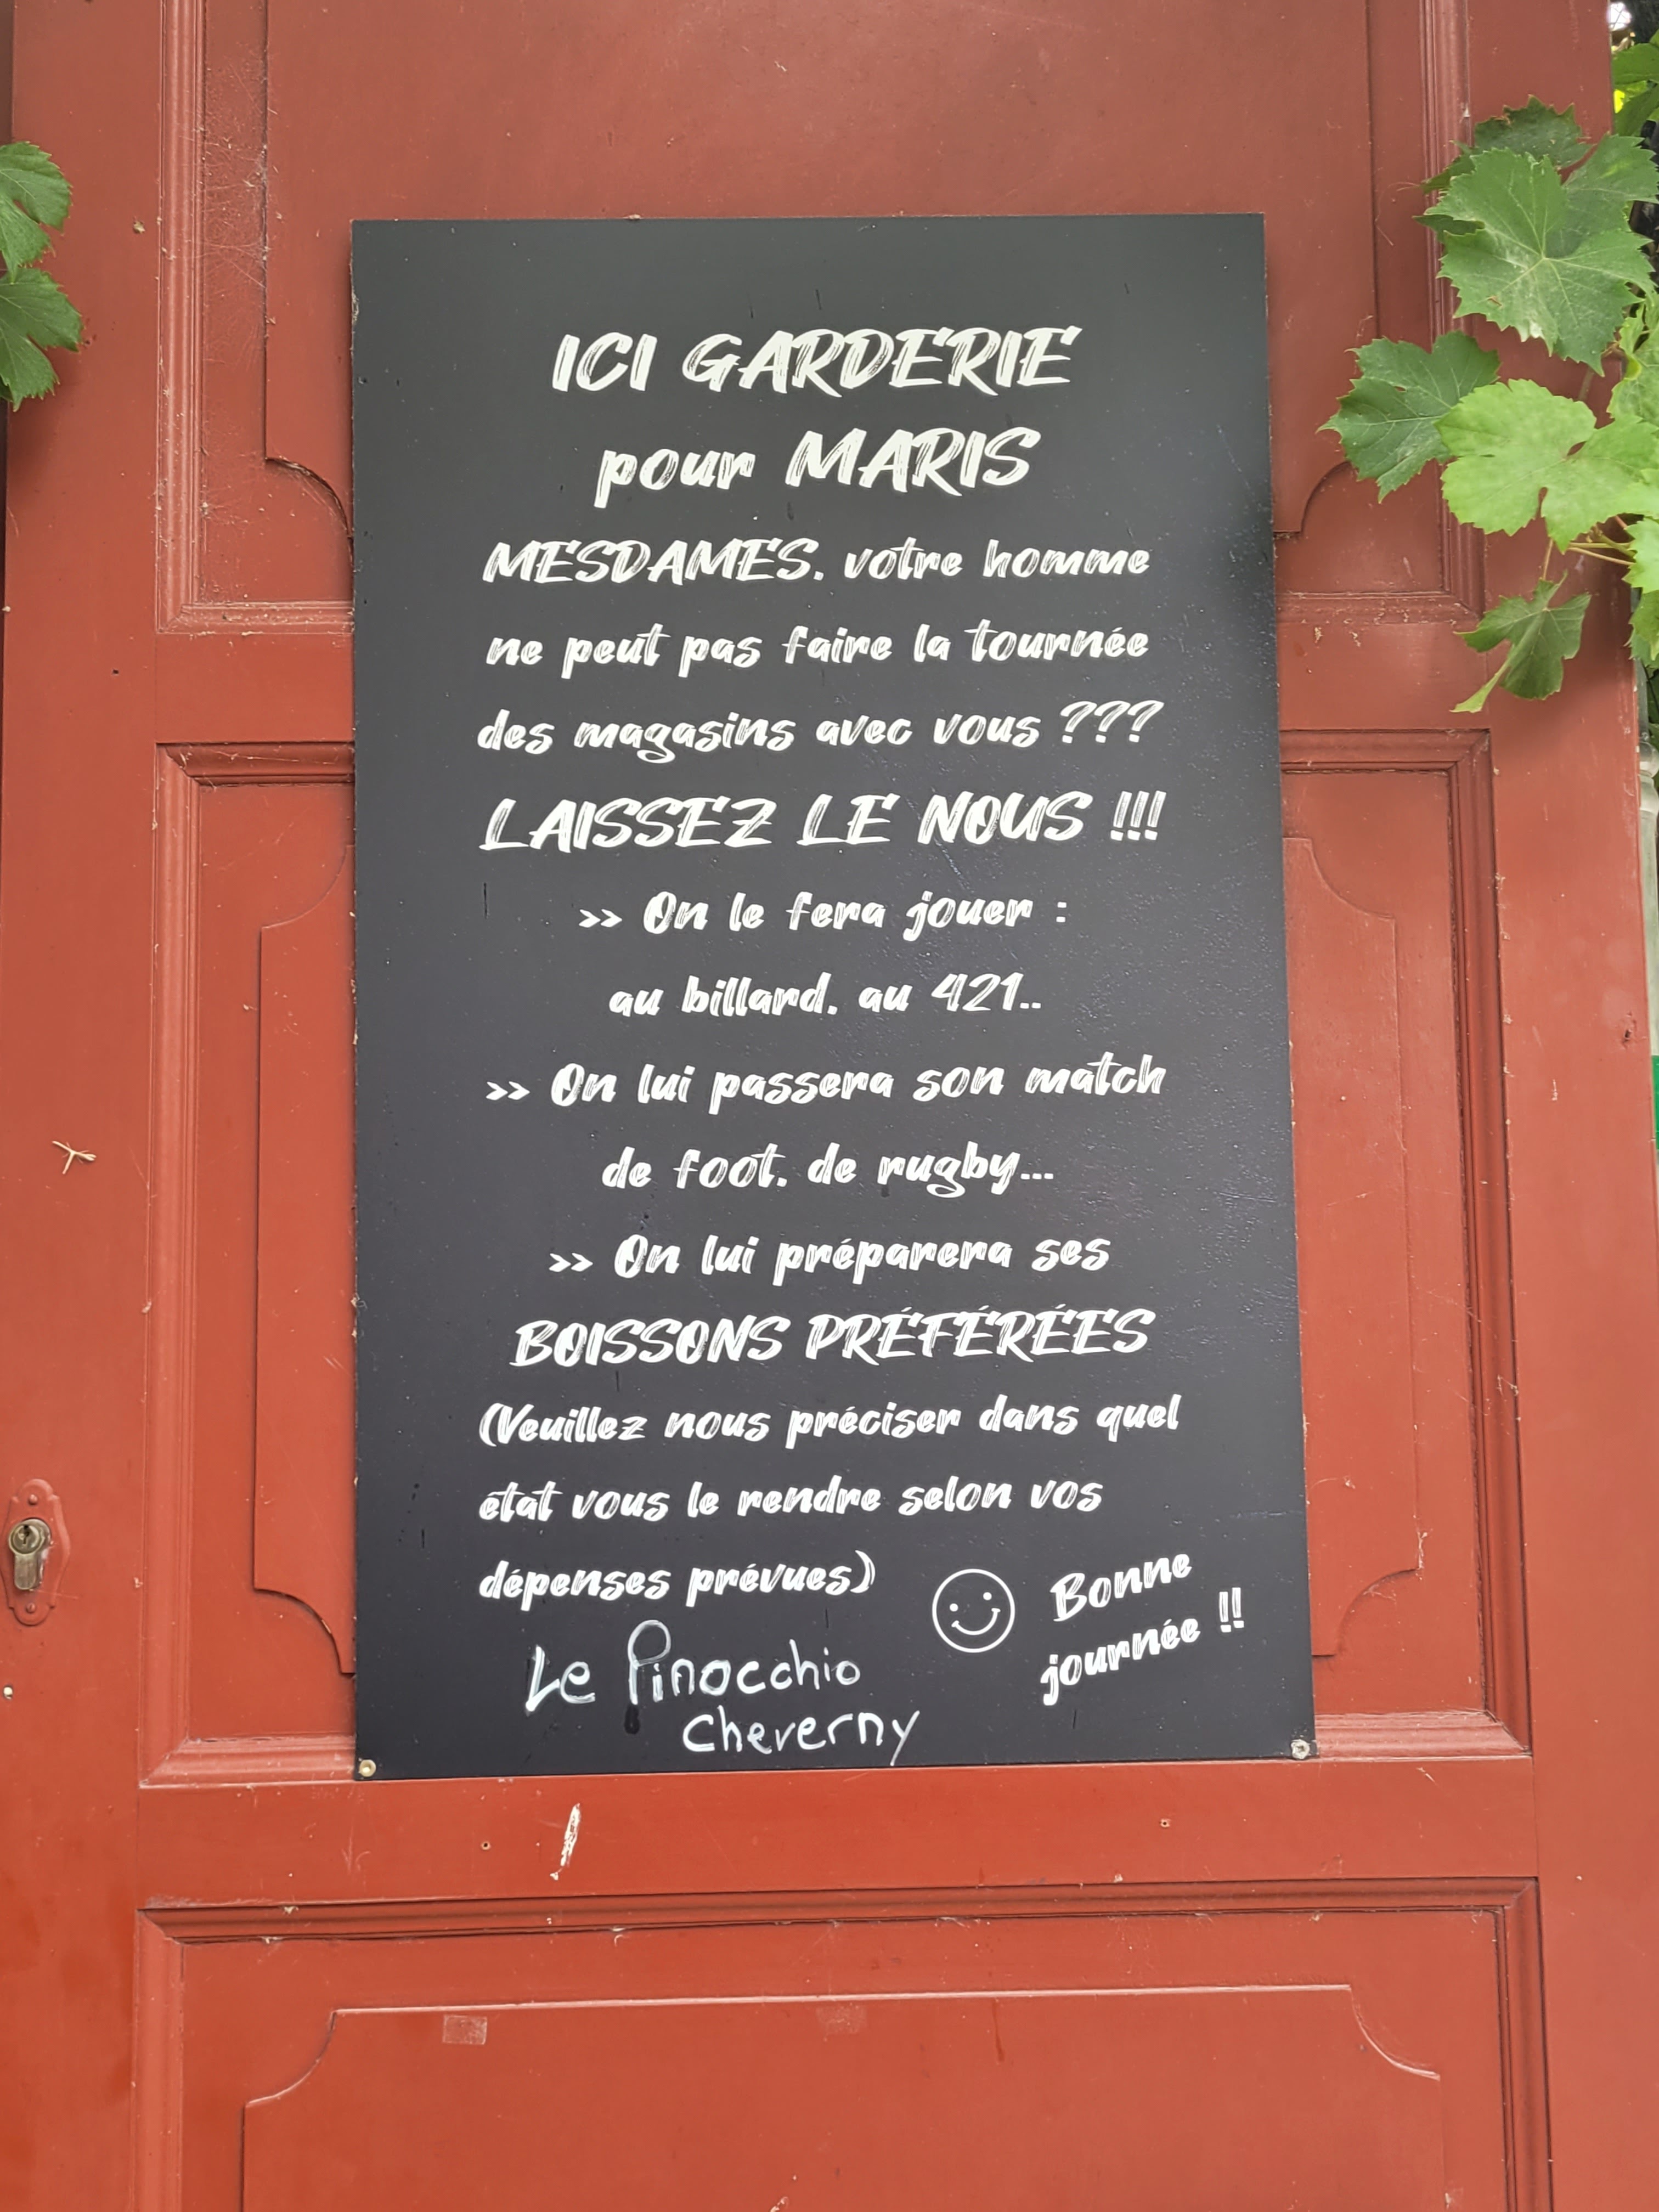 ICI GARDERIE
pour MARIS
MESDAMES, votre homme
ne peut pas faire la tournée
des magasins avec vous ???
LAISSEZ LE NOUS !!!
>> On le fera jouer :
au billard, au 421..
>> On lui passera son match
de foot, de rugby...
>> On lui préparera ses
BOISSONS PRÉFÉRÉES
(Veuillez nous préciser dans quel
état vous le rendre selon vos
dépenses prévues)
Bonne
journée !!
Le Pinocchio
Cheverny